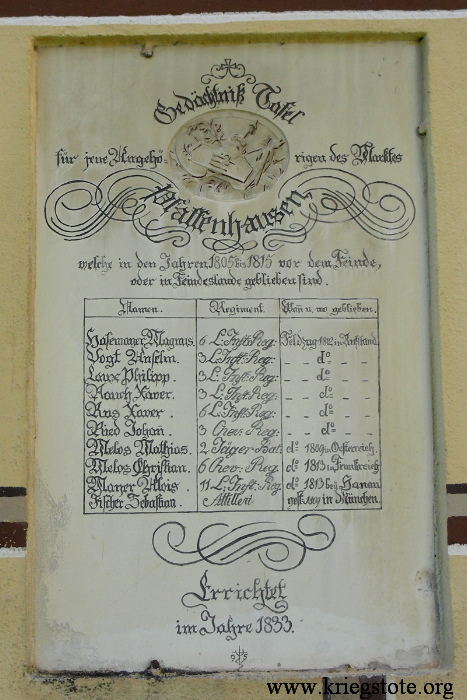 Gedächtniß Tafel
für jene Angehö- rigen des Marktes
Pfaffenhausen,
welche in den Jahren 1805 bis 1815 vor dem Feinde,
oder in Feindeslande geblieben sind.
Namen. Regiment. Wañ u. wo geblieben.
Hasemayer Magnus. 6 L: Inft: Reg: Feldzug 1812 in Rußland.
Vogt Anselm. 3 L: Inft: Reg: _ _ do _ _
Laux Philipp. 3 L: Inft: Reg: _ _ do _ _
Rauch Xaver. 3 L: Inft: Reg: _ _ do _ _
Rus Xaver. 6 L: Inft: Reg: _ _ do _ _
Ried Johan. 3 Chev: Reg: _ _ do _ _
Melos Mathias. 2 Jäger-Bat: do 1809 in Oesterreich.
Melos Christian. 6 Chev: Reg. do 1813 in Frankreich
Mayer Alois 11 L: Inft: Reg do 1813 bei Hanau
Fischer Sebastian. Attilleri gest. 1809 in München.
Errichtet
im Jahre 1833.
www.kriegstote.org